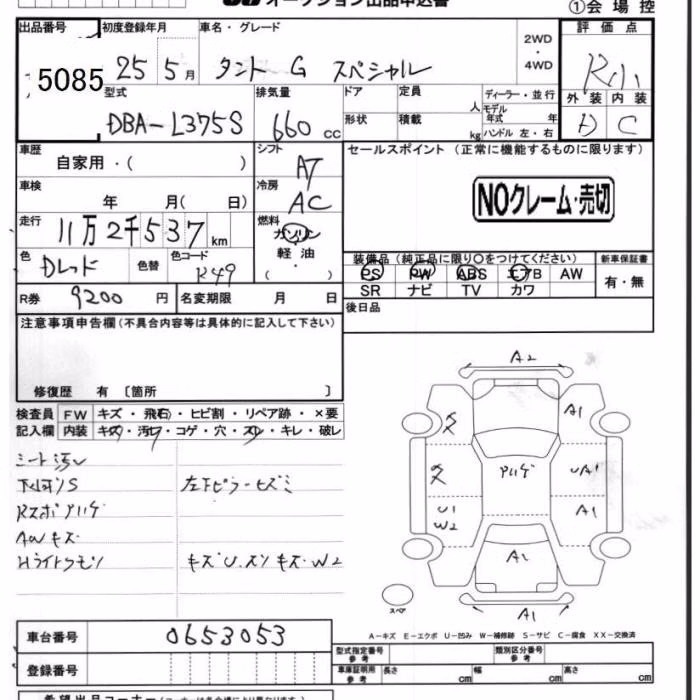 オークション出品申込書
①会場控
出品番号 初度登録年月 車名・グレード 評価点
5085 25 5月 タント G スペシャル 2WD・4WD R小
型式 排気量 ドア 定員 人 ディーラー・並行 外装 内装
DBA-L375S 660cc 形状 積載 kg モデル年式 年 ハンドル 左・右 D C
車歴 シフト セールスポイント (正常に機能するものに限ります)
自家用・( ) AT
車検 冷房 NOクレーム・売切
年 月( 日) AC
走行 燃料
11万2千537km ガソリン
色 色替 色コード 軽油
Dレッド R49 ( )
装備品 (純正品に限り〇をつけてください) 新車保証書
PS PW ABS エアB AW 有・無
SR ナビ TV カワ
R券 9200円 名変期限 月 日 後日品
注意事項申告欄(不具合内容等は具体的に記入して下さい)
修復歴 有 〔箇所 〕
検査員 FW キズ・飛石・ヒビ割・リペア跡・×要
記入欄 内装 キズ・汚レ・コゲ・穴・スレ・キレ・破レ
シート汚レ
下回リS 左下ピラーヒズミ
AWキズ
Hライトクモリ キズ U.スソ キズ・W2
A2
A1
UA1
U1
W2
A1
A1
A1
スペア
A-キズ E-エクボ U-凹み W-補修跡 S-サビ C-腐食 XX-交換済
車台番号 0653053
型式指定番号 参考 類別区分番号 参考
登録番号 車庫証明用 参考 長さ cm 幅 cm 高さ cm
希望出品コーナー